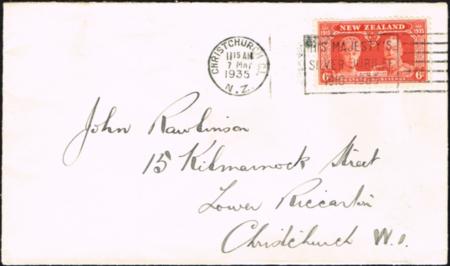 CHRISTCHURCH C.1.
11 15 AM
7 MAY
1935
N.Z.
NEW ZEALAND
1910 1935
HIS MAJESTY'S
SILVER JUBILEE
1910-1935
6D 6D
John Rawlinson
15 Kilmarnock Street
Lower Riccarton
Christchurch W.1.